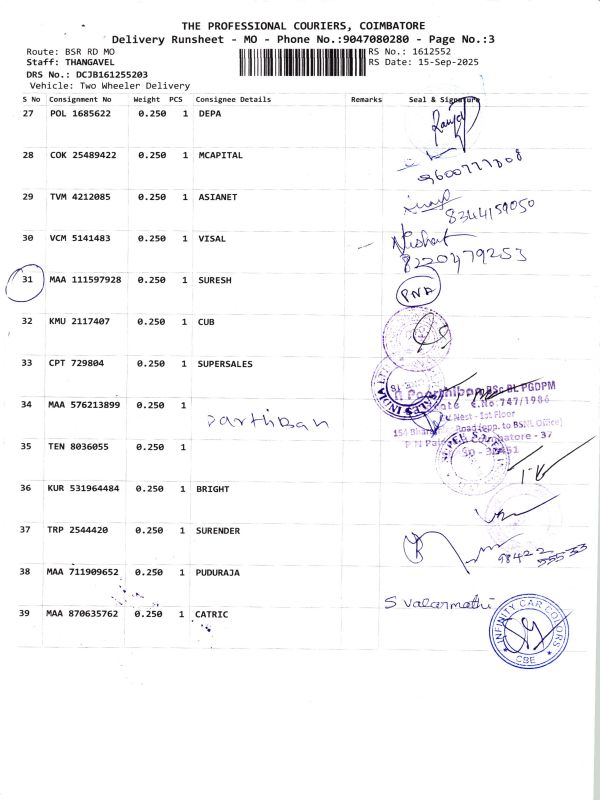 THE PROFESSIONAL COURIERS, COIMBATORE
Delivery Runsheet - MO - Phone No.:9047080280 - Page No.:3
Route: BSR RD MO RS No.: 1612552
Staff: THANGAVEL RS Date: 15-Sep-2025
DRS No.: DCJB161255203
Vehicle: Two Wheeler Delivery
S No Consignment No Weight PCS Consignee Details Remarks Seal & Signature
27 POL 1685622 0.250 1 DEPA
28 COK 25489422 0.250 1 MCAPITAL
9600777808
29 TVM 4212085 0.250 1 ASIANET
8344159050
30 VCM 5141483 0.250 1 VISAL Nishat
8220479253
31 MAA 111597928 0.250 1 SURESH PNA
32 KMU 2117407 0.250 1 CUB
33 CPT 729804 0.250 1 SUPERSALES
BSc BL PGDPM
34 MAA 576213899 0.250 1 747/1986
Parthiban
Nest - 1st Floor
Road (opp. to BSNL Office)
35 TEN 8036055 0.250 1
36 KUR 531964484 0.250 1 BRIGHT
37 TRP 2544420 0.250 1 SURENDER
98422 55533
38 MAA 711909652 0.250 1 PUDURAJA
S Valarmathi
39 MAA 870635762 0.250 1 CATRIC
INFINITY CAR COLORS
CBE